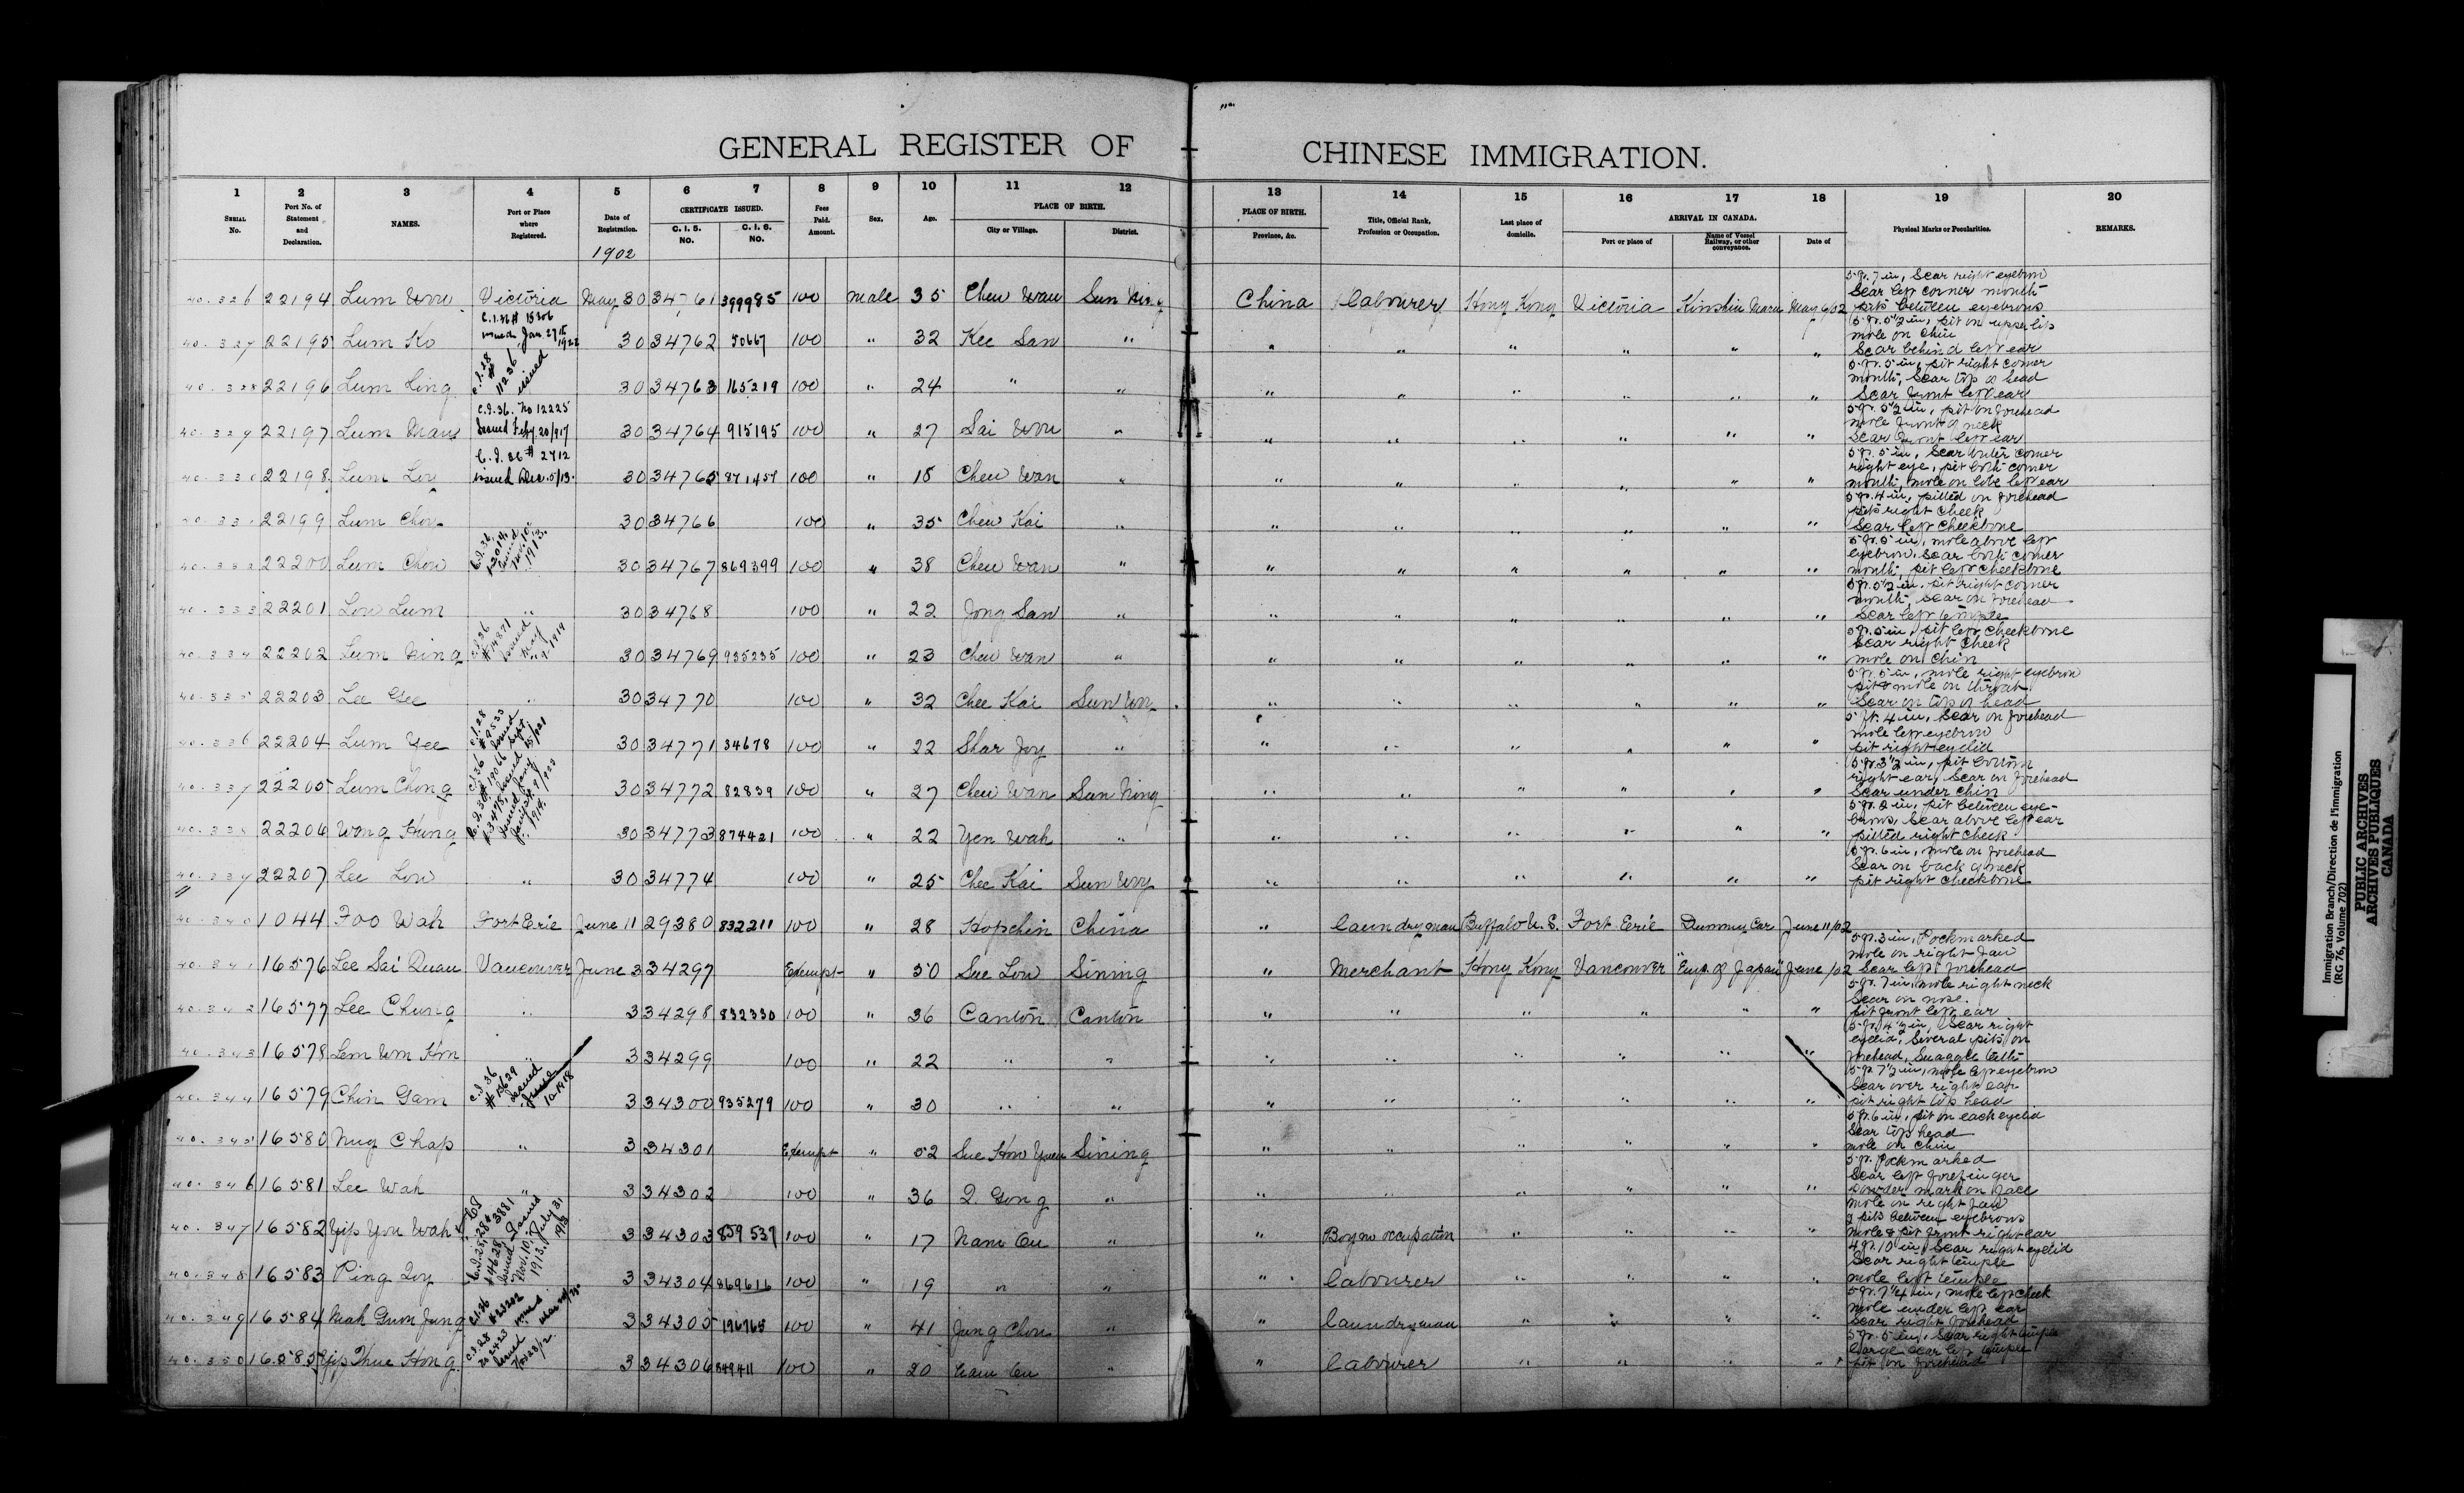 GENERAL REGISTER OF CHINESE IMMIGRATION.
1 2 3 4 5 6 7 8 9 10 11 12 13 14 15 16 17 18 19 20
SERIAL No. Port No. of Statement and Declaration. NAMES. Port or Place where Registered. Date of Registration. CERTIFICATE ISSUED. C. I. 5. NO. C. I. 6. NO. Fees Paid. Amount. Sex. Age. PLACE OF BIRTH. City or Village. District. PLACE OF BIRTH. Province, &c. Title, Official Rank, Profession or Occupation. Last place of domicile. ARRIVAL IN CANADA. Port or place of Name of Vessel Railway, or other conveyance. Date of Physical Marks or Peculiarities. REMARKS.
1902
40.326 22194 Lum Victoria May 30 34761 399985 100 Male 35 Cheu Wan Sun Ning China Labourer Hong Kong Victoria Kinshiu Maru May 6/02 5 ft. 7 in, Scar right eyebrow
Scar left corner mouth
pits between eyebrows
40.327 22195 Lum Ko 30 34762 50667 100 " 32 Kee San " " " " " " " 5 ft. 5½ in, pit on upper lip
mole on chin
Scar behind left ear
40.328 22196 Lum Ling C.I.28 # 11236 issued 30 34763 165219 100 " 24 " " " " " " " " 5 ft. 5 in, pit right corner
mouth, Scar top of head
Scar front left ear
40.329 22197 Lum C.I.36. No 12225 Issued Feby. 20/917 30 34764 915195 100 " 27 Sai " " " " " " " 5 ft. 5½ in, pit on forehead
mole front of neck
Scar front left ear
40.330 22198 Lum C.I.36 # 2712 issued Dec. 5/13. 30 34765 871457 100 " 18 Cheu Wan " " " " " " " 5 ft. 5 in, Scar outer corner
right eye, pit both corner
mouth, mole on lobe left ear
40.331 22199 Lum Chou 30 34766 100 " 35 Cheu Kai " " " " " " " 5 ft. 4 in, pitted on forehead
pits right cheek
Scar left cheekbone
40.332 22200 Lum Chow C.I.36, issued Nov. 10, 1913. 30 34767 869399 100 " 38 Cheu Wan " " " " " " " 5 ft. 5 in, mole above left
eyebrow, Scar both corner
mouth, pit left cheekbone
40.333 22201 Low Lum " 30 34768 100 " 22 Jong San " " " " " " " 5 ft. 5½ in, pit right corner
mouth, Scar on forehead
Scar left temple
40.334 22202 Lum Ning C.I.36 #14871 issued May 1919 30 34769 935235 100 " 23 Cheu Wan " " " " " " " 5 ft. 5 in, pit left cheekbone
Scar right cheek
mole on chin
40.335 22203 Lee Gee " 30 34770 100 " 32 Chee Kai Sun " " " " " " 5 ft. 5 in, mole right eyebrow
pit & mole on throat
Scar on top of head
40.336 22204 Lum Yee 30 34771 34678 100 " 22 Shar Joy " " " " " " " 5 ft. 4 in, Scar on forehead
mole left eyebrow
pit right eyelid
40.337 22205 Lum Chong 30 34772 82839 100 " 27 Cheu Wan Sun Ning " " " " " " 5 ft. 3½ in, pit bottom
right ear, Scar on forehead
Scar under chin
40.338 22206 Wong Hung 30 34773 874421 100 " 22 Yen Wah " " " " " " " pit between eye-
brows, Scar above left ear
pitted right cheek
40.339 22207 Lee Low " 30 34774 100 " 25 Chee Kai Sun " " " " " " 5 ft. 6 in, mole on forehead
Scar on back of neck
pit right cheekbone
40.340 1044 Foo Wah Fort Erie June 11 29380 832211 100 " 28 Hopchin China " Laundryman Buffalo U.S. Fort Erie Dummy Car June 11/02
40.341 16576 Lee Sai Quan Vancouver June 3 34297 Exempt " 50 Sue Low Sining " Merchant Hong Kong Vancouver "Emp. of Japan" June /02 5 ft. 3 in, Pockmarked
mole on right jaw
Scar left forehead
40.342 16577 Lee Chung " 3 34298 832330 100 " 36 Canton Canton " " " " " " 5 ft. 7 in, mole right neck
Scar on nose.
pit front left ear
40.343 16578 Lem Wm Hon " 3 34299 100 " 22 " " " " " " " " 5 ft. 4½ in, Scar right
eyelid, Several pits on
forehead, Snaggle teeth
40.344 16579 Chin Gam C.I.36 #13629 issued June 10-1918 3 34300 935279 100 " 30 " " " " " " " " 5 ft. 7½ in, mole left eyebrow
Scar over right ear
pit right top head
40.345 16580 Nug Chap " 3 34301 Exempt " 52 Sue How Yuen Sining " " " " " " 5 ft. 6 in, pit on each eyelid
Scar top head
mole on chin
40.346 16581 Lee Wah " 3 34302 100 " 36 Q. Gong " " " " " " " 5 ft. Pockmarked
Scar left forefinger
Powder mark on face
mole on right jaw
40.347 16582 Yip You Wah 3 34303 859539 100 " 17 Nam Cu " " Boy no occupation " " " " 2 pits between eyebrows
mole & pit front right ear
40.348 16583 Ping Joy 3 34304 869616 100 " 19 " " " Labourer " " " " 4 ft. 10 in, Scar right eyelid
Scar right temple
mole left temple
40.349 16584 Mah Gum Jung 3 34305 196765 100 " 41 Jung Chou " " Laundryman " " " " 5 ft. 7¼ in, mole left cheek
mole under left ear
Scar right forehead
40.350 16585 Yip Hong 3 34306 848411 100 " 20 Nam Cu " " Labourer " " " " 5 ft. 5 in, Scar right temple
Large scar left temple
pit on forehead
Immigration Branch/Direction de l'immigration
(RG 76, Volume 702)
PUBLIC ARCHIVES
ARCHIVES PUBLIQUES
CANADA